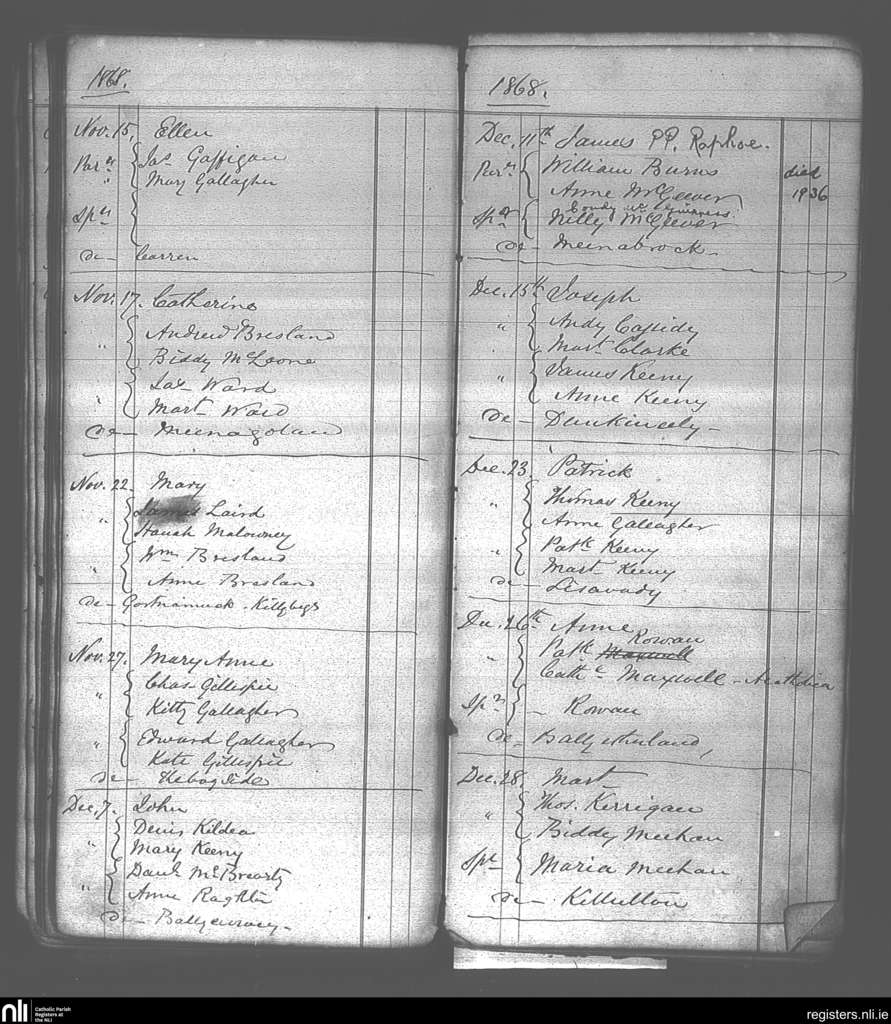 1868.
Nov. 15, Ellen
Par.ts Jas Gaffigan
" Mary Gallagher
Sprs
de - Correen
Nov. 17. Catherine
Andrew Bresland
" Biddy McLoone
Jas Ward
" Mart Ward
de - Meenagolan
Nov. 22. Mary
" James Laird
Hanah Malowney
Wm Bresland
" Anne Bresland
de - Gortnamuck - Killybegs
Nov. 27. Mary Anne
Chas Gillispie
" Kitty Gallagher
" Edward Gallagher
Kate Gillispie
de - The bog Side
Dec. 7. John
Denis Kildea
" Mary Keeny
Danl McBrearty
" Anne
de -
1868.
Dec. 11th James PP. Raphoe.
Par.ts William Burns died
Anne McGeever 1936
Spr Nelly McGeever
de - Meenabrock -
Dec. 15th Joseph
" Andy Cassidy
Mart Clarke
" James Keeny
Anne Keeny
de - Dunkineely -
Dec. 23 Patrick
" Thomas Keeny
Anne Galeagher
" Patk Keeny
Mart Keeny
de - Lisavady
Dec. 26th Anne
Rowan
" Patk Maxwell
Cathe Maxwell -
Sprs - Rowan
de -
Dec. 28 Mart
" Thos. Kerrigan
Biddy Meehan
Spr Maria Meehan
de - Killulton
nli Catholic Parish
Registers at
the NLI
registers.nli.ie